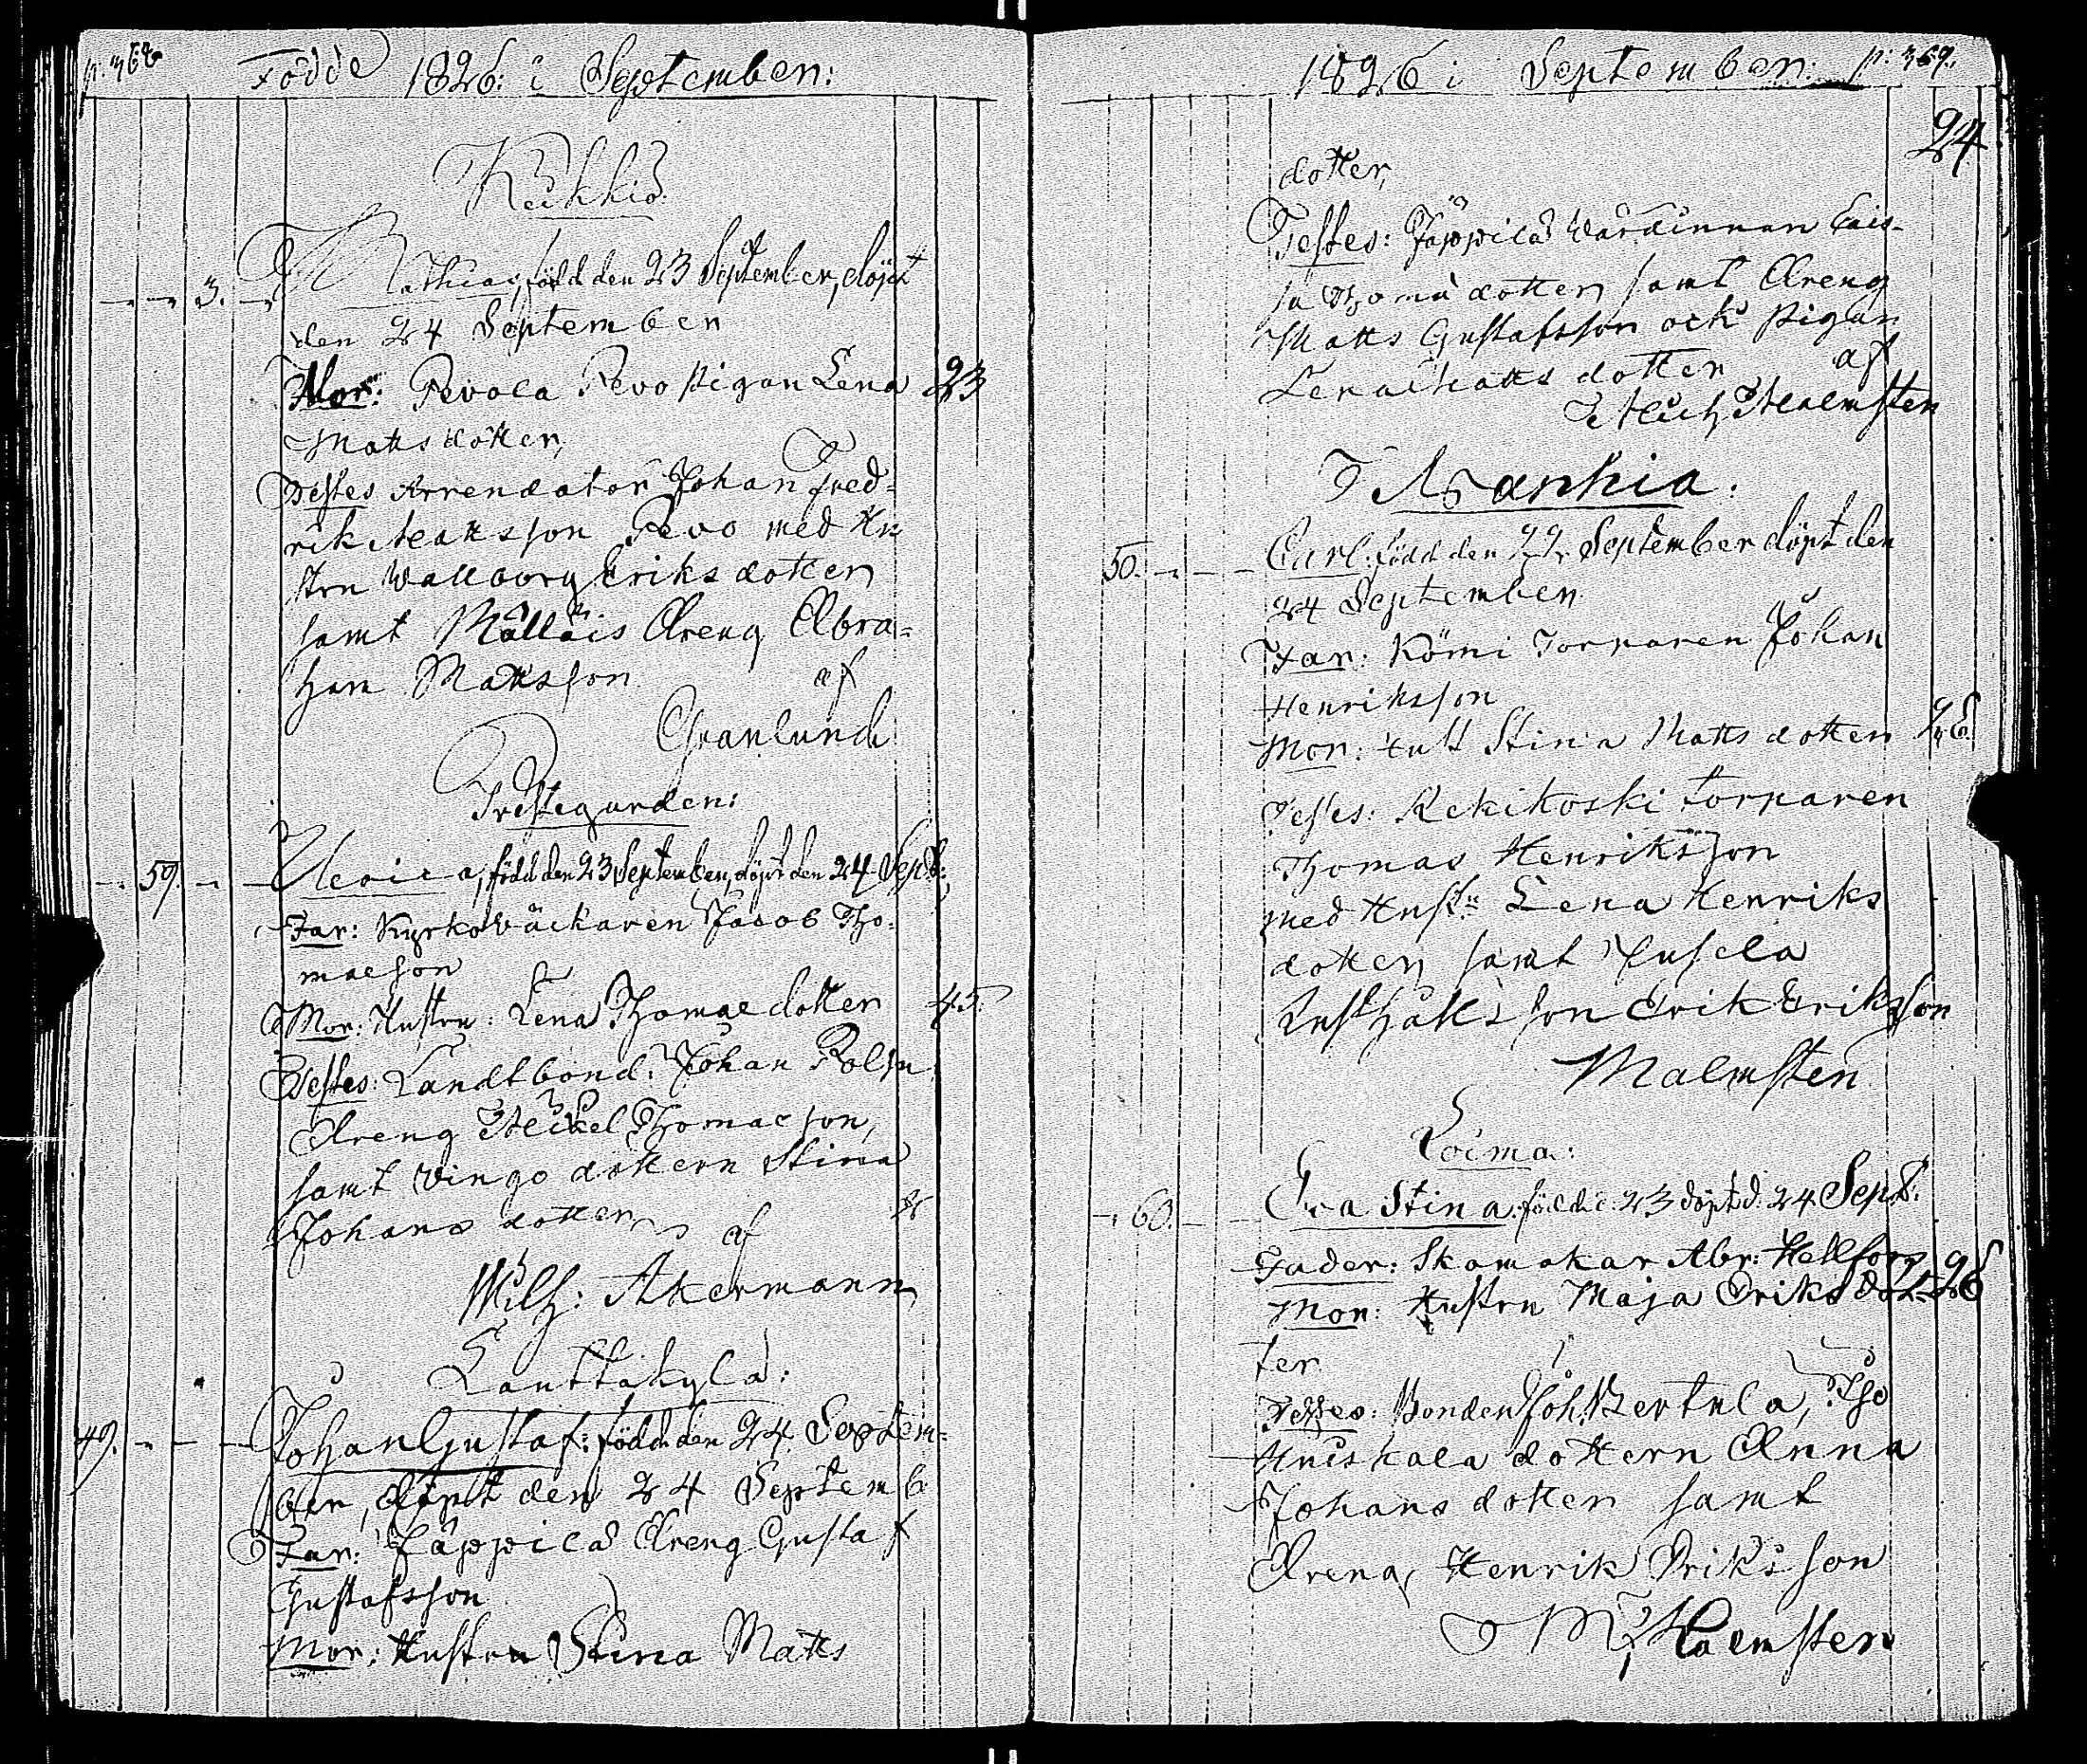 p: 368 Födde 1826: i September:
Kukkio
3. Mathias, född den 23 September, döpt
den 24 September
Mor: Pevola Pevo pigan Lena 23
Matts dotter,
Testes Arrendatorn Johan Fred-
rik Mattsson Pevo med Hu-
stru Wallborg Eriks dotter
samt Mälläis Dreng Abra-
ham Mattsson af
Granlund
Prestegården:
59. Ulrica, född den 23 September, döpt den 24 Sept:
Far: Kyrkowäckaren Jacob Tho-
maeson
Mor: Hustru: Lena Thomae dotter 45.
Testes: Landtbond: Johan
Dreng Michel Thomae son,
samt Vingo dottern Stina
Johans dotter
af
Wilh: Åkermann
Lauttakylä:
49. Johan Gustaf: född den 24 Septem-
ber, döpt den 24 Septemb
Far: Jäppilä Dreng Gustaf
Gustafsson
Mor: Hustru Stina Matts
1826 i September: p: 369.
24
dotter,
Testes: Jäppilä Wärdinnan Cais-
sa Thomae dotter samt Dreng
Matts Gustafsson och Pigan
Lena Matts dotter af
Mich Malmsten
Wankia.
50. Carl: född den 22 September döpt den
24 September
Far: Kömi Torparen Johan
Henriksson
Mor: Hust Stina Matts dotter
Testes: Kekikoski torparen
Thomas Henriksson
med Hustru Lena Henriks
dotter samt
Inhysson Erik Eriksson
Malmsten
Loima:
60. Eva Stina född d: 23 döpt d: 24 Sept.
Fader: Skomakar Abr: Hellfors
Mor: Hustru Maja Eriks dot- 26
ter
Testes: Bonden Joh: Bertula,
Huiskala dottern Anna
Johans dotter samt
Dreng Henrik Eriks son
M: Malmsten